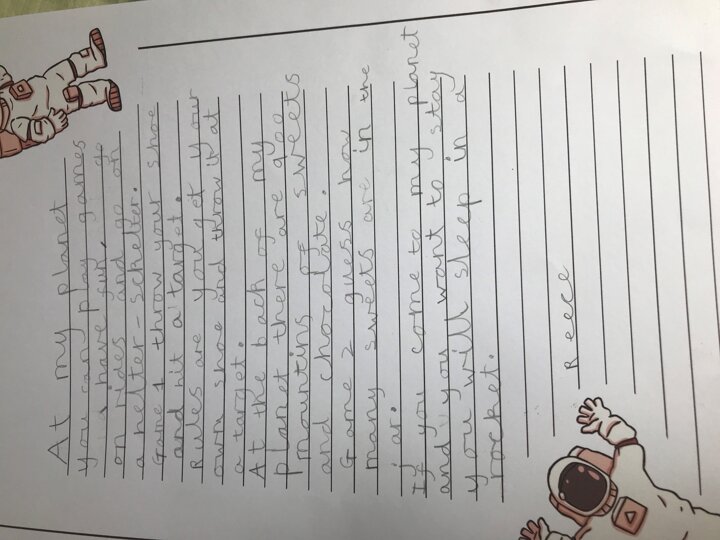 At my planet
You can play games
have fun, go
on rides and go on
a helter-schelter.
Game 1 throw your shoe
and hit a target.
Rules are you get your
own shoe and throw it at
a target.
At the back of my
planet there are goe
mountins of sweets
and chocolate.
Game 2 guess how
many sweets are in the
jar.
If you come to my planet
and you want to stay
you will sleep in a
rocket.
Reece